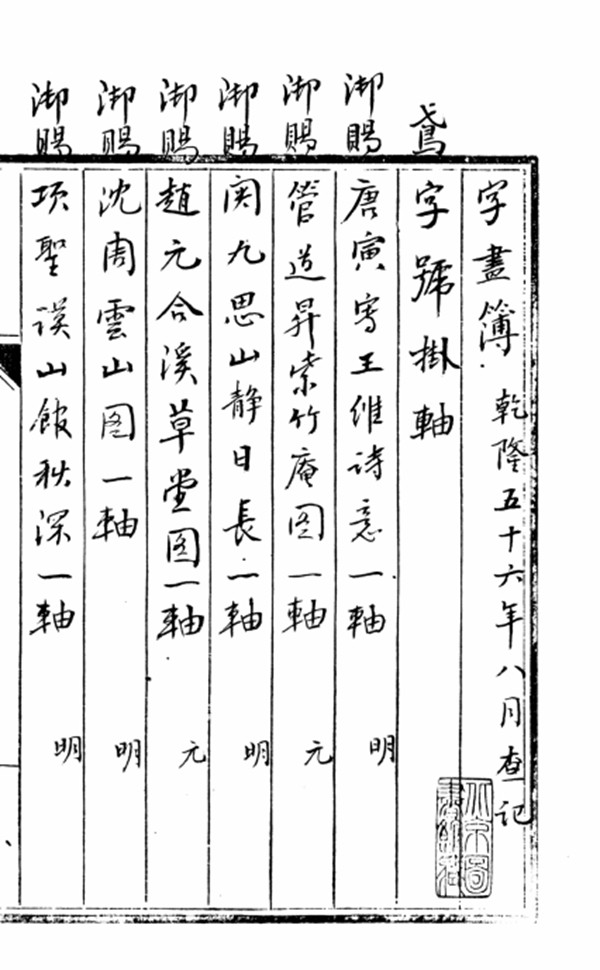 字畫簿 乾隆五十六年八月查記
鳶字號掛軸
御賜 唐寅写王維詩意一軸 明
御賜 管道昇紫竹庵图一軸 元
御賜 関九思山静日長一軸 明
御賜 趙元合溪草堂图一軸 元
御賜 沈周雲山图一軸 明
御賜 項聖謨山館秋深一軸 明
北京圖
書館藏